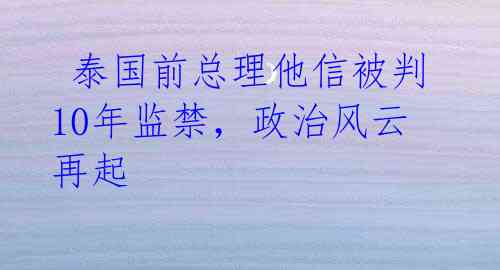 泰国前总理他信被判
10年监禁，政治风云
再起